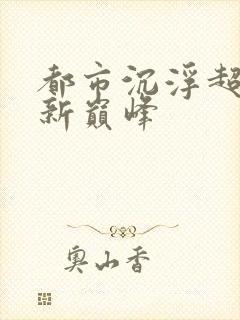 都市沉浮超
新巅峰
奥山香